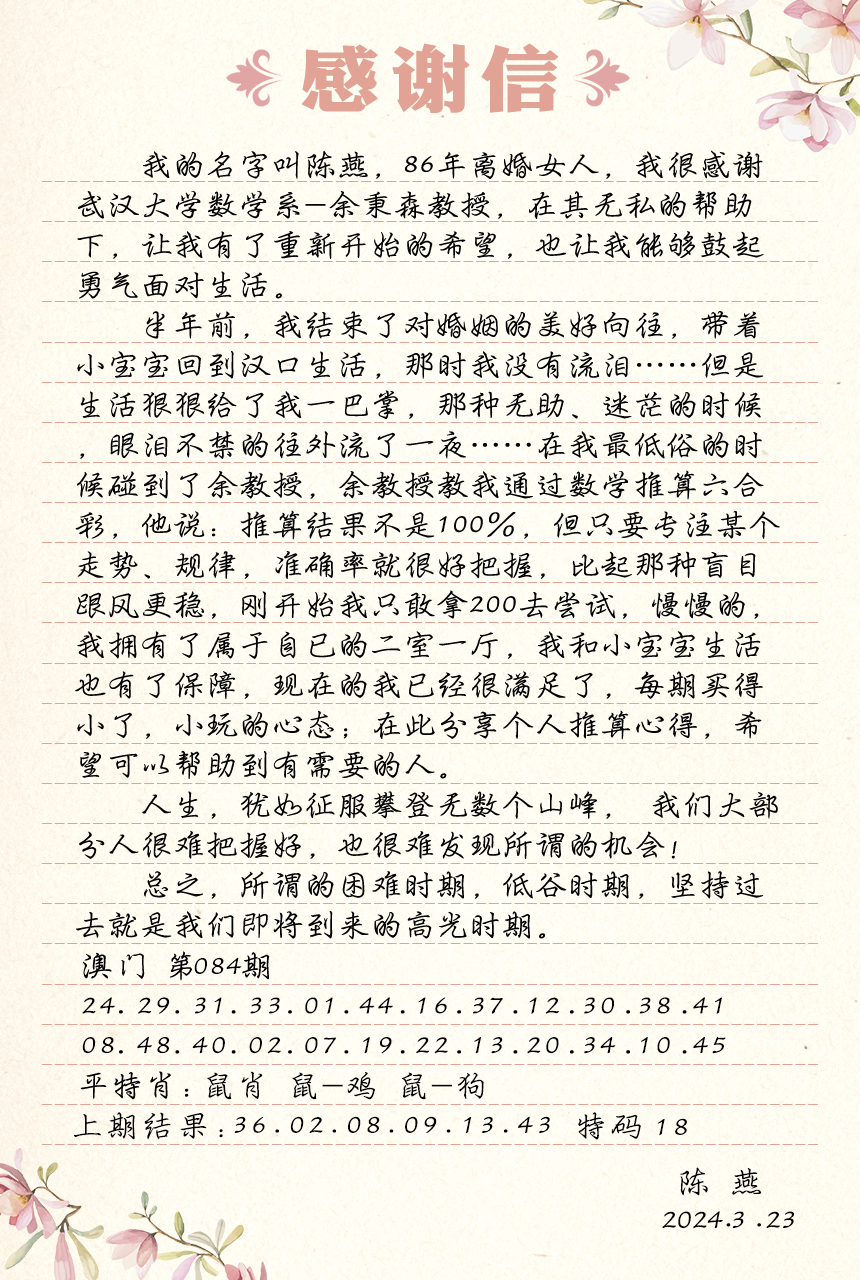 感谢信
我的名字叫陈燕，86年离婚女人，我很感谢
武汉大学数学系—余秉森教授，在其无私的帮助
下，让我有了重新开始的希望，也让我能够鼓起
勇气面对生活。
半年前，我结束了对婚姻的美好向往，带着
小宝宝回到汉口生活，那时我没有流泪……但是
生活狠狠给了我一巴掌，那种无助、迷茫的时候
，眼泪不禁的往外流了一夜……在我最低俗的时
候碰到了余教授，余教授教我通过数学推算六合
彩，他说：推算结果不是100%，但只要专注某个
走势、规律，准确率就很好把握，比起那种盲目
跟风更稳，刚开始我只敢拿200去尝试，慢慢的，
我拥有了属于自已的二室一厅，我和小宝宝生活
也有了保障，现在的我已经很满足了，每期买得
小了，小玩的心态；在此分享个人推算心得，希
望可以帮助到有需要的人。
人生，犹如征服攀登无数个山峰， 我们大部
分人很难把握好，也很难发现所谓的机会！
总之，所谓的困难时期，低谷时期，坚持过
去就是我们即将到来的高光时期。
澳门 第084期
24.29.31.33.01.44.16.37.12.30.38.41
08.48.40.02.07.19.22.13.20.34.10.45
平特肖：鼠肖 鼠—鸡 鼠—狗
上期结果：36.02.08.09.13.43 特码 18
陈 燕
2024.3.23